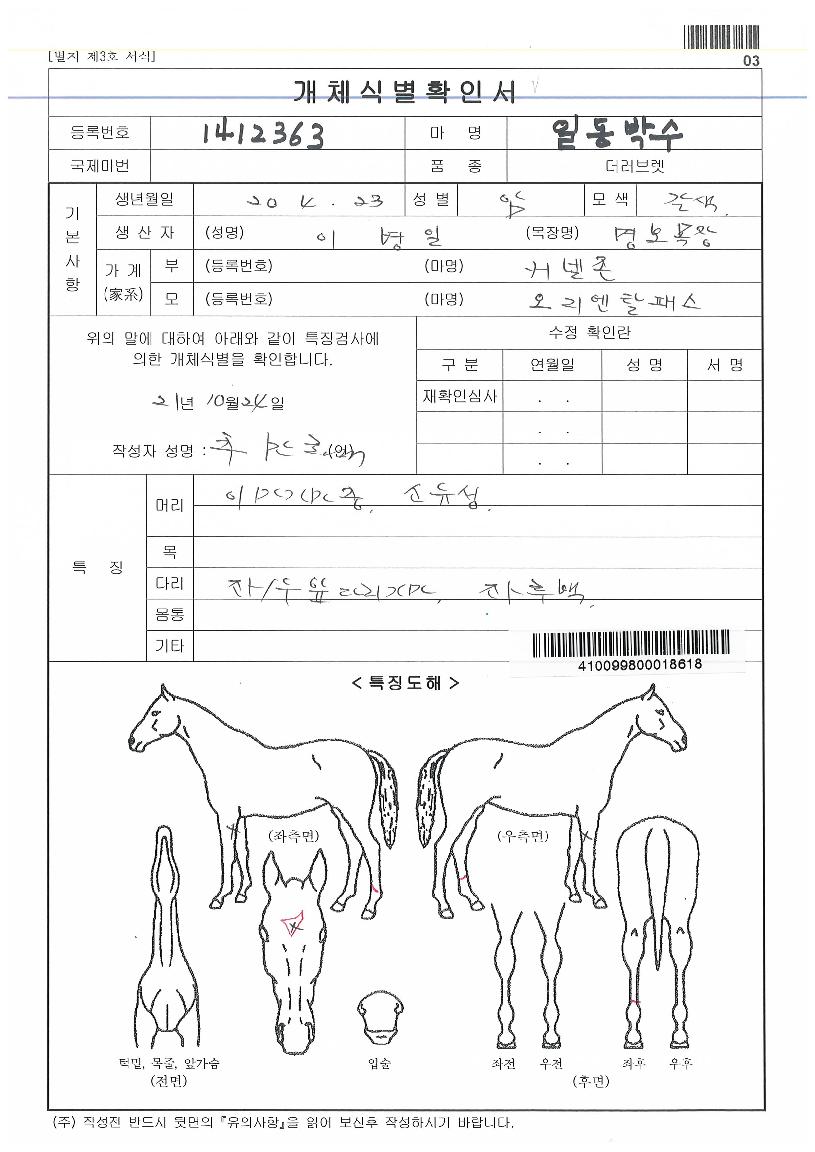 [별지 제3호 서식]
03
개체식별확인서
등록번호 1412363 마 명 일동박수
국제마번 품 종 더러브렛
기본사항
생년월일 20 4 . 23 성 별 암 모 색 갈색.
생 산 자 (성명) 이 병 일 (목장명) 명보목장
가 계 (家系) 부 (등록번호) (마명) 커넬존
모 (등록번호) (마명) 오리엔탈패스
위의 말에 대하여 아래와 같이 특징검사에
의한 개체식별을 확인합니다.
21년 10월 24일
작성자 성명 : (인)
수정 확인란
구 분 연월일 성 명 서 명
재확인심사 . .
. .
. .
특 징
머리 소유성.
목
다리 좌/우 앞다리 좌후백.
몸통
기타
410099800018618
< 특징도해 >
(좌측면) (우측면)
턱밑, 목줄, 앞가슴
(전면)
입술
좌전 우전 좌후 우후
(후면)
(주) 작성전 반드시 뒷면의 『유의사항』을 읽어 보신후 작성하시기 바랍니다.